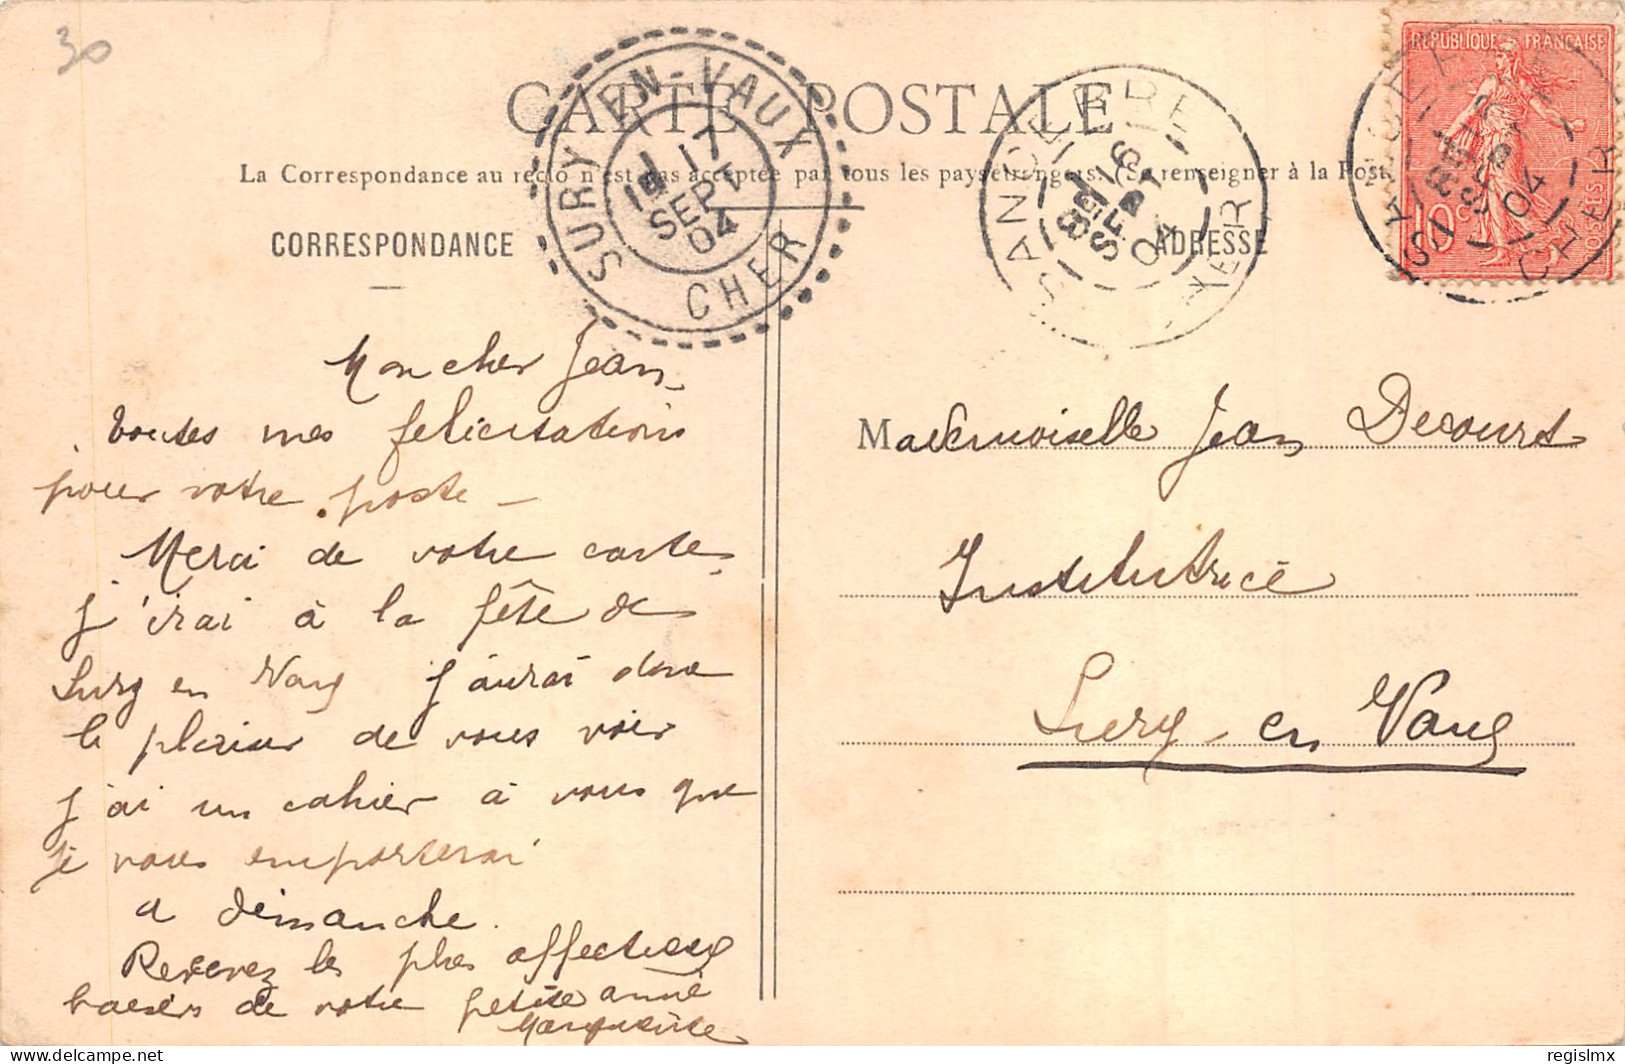 30
CARTE POSTALE
La Correspondance au recto n'est pas acceptée par tous les pays étrangers. (Se renseigner à la Poste
CORRESPONDANCE
ADRESSE
SURY-EN-VAUX
17
SEPT
04
CHER
SANCERRE
8E 16
SEPT
04
CHER
REPUBLIQUE FRANÇAISE
10c
POSTES
SANCERRE
8E 16
SEPT
04
CHER
Mon cher Jean,
toutes mes felicitations
pour votre poste -
Merci de votre carte,
j'irai à la fête de
Sury en Vaux j'aurai donc
le plaisir de vous voir
j'ai un cahier à vous que
je vous emporterai
a dimanche.
Recevez les plus affectueux
baisers de votre petite amie
Marguerite
Mademoiselle Jean Decourt
Institutrice
Sury-en Vaux
regislmx
©delcampe.net